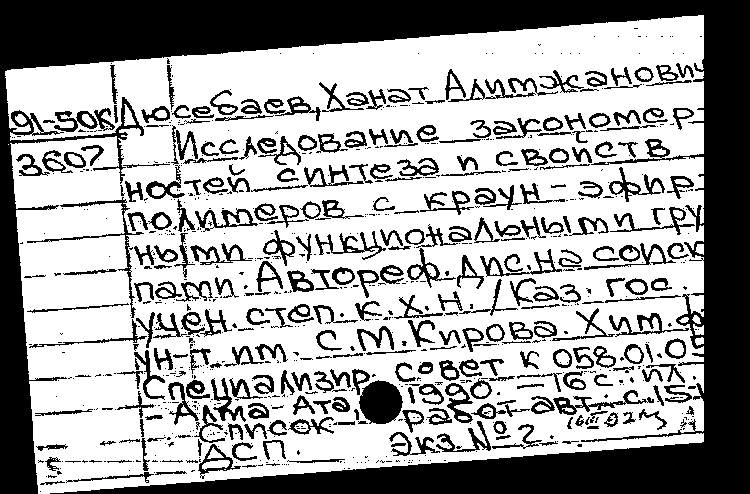 91-50К Дюсебаев, Ханат Алимжанович
3607 Исследование закономер-
ностей синтеза и свойств
полимеров с краун-эфир-
ными функциональными гру
пами: Автореф. дис. на соиск
учен. степ. к.х.н. / Каз. гос.
ун-т им. С.М.Кирова. Хим. ф
Специализир. совет К 058.01.05
- Алма-Ата, 1990. - 16 с.: ил.
Список работ авт.: с. 15-
ДСП. Экз. № 2.